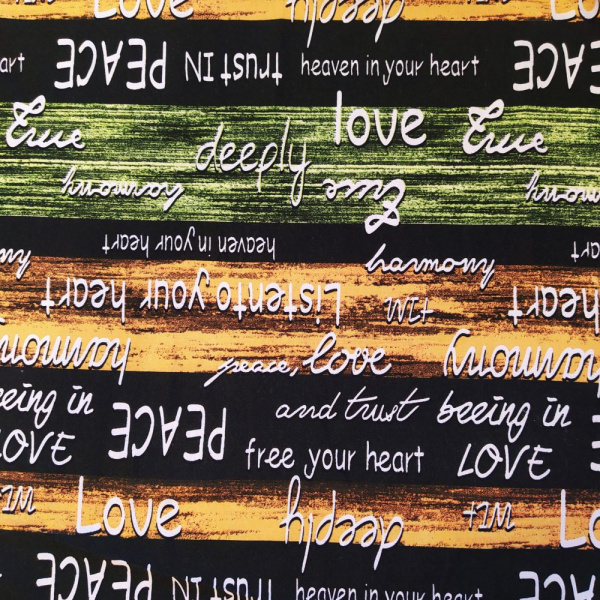 Love deeply
art PEACE trust IN heaven in your heart PEACE
True deeply love True
harmony True harmony
heaven in your heart harmony
Listen to your heart heart
harmony peace, love harmony
beeing in and trust beeing in
LOVE PEACE free your heart LOVE
Love deeply Lo
PEACE trust IN heaven in your heart PEACE